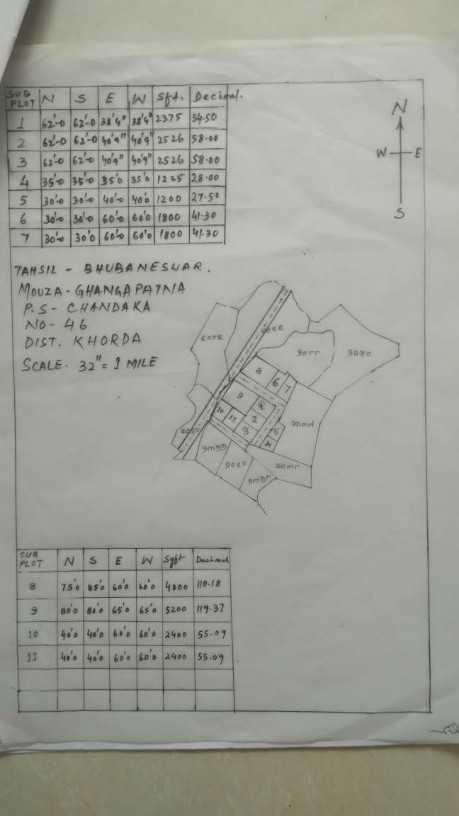 SUB PLOT N S E W Sft. Decimal.
1 62'-0 62'-0 38'4" 38'4" 2375 54.50
2 62'-0 62'-0 40'9" 40'9" 2526 58.00
3 62'-0 62'-0 40'9" 40'9" 2526 58.00
4 35'-0 35'-0 35'0 35'0 1225 28.00
5 30'-0 30'-0 40'-0 40'0 1200 27.50
6 30'-0 30'-0 60'-0 60'0 1800 41.30
7 30'-0 30'0 60'-0 60'0 1800 41.30
N
W E
S
TAHSIL - BHUBANESWAR.
MOUZA - GHANGAPATNA
P.S - CHANDAKA
NO - 46
DIST. KHORDA
SCALE - 32" = 1 MILE
8
6 7
9
2
10 11 3
5
SUB PLOT N S E W Sqft Decimal
8 75'0 85'0 60'0 60'0 4800 110.18
9 80'0 80'0 65'0 65'0 5200 119.37
10 40'0 40'0 60'0 60'0 2400 55.09
11 40'0 40'0 60'0 60'0 2400 55.09